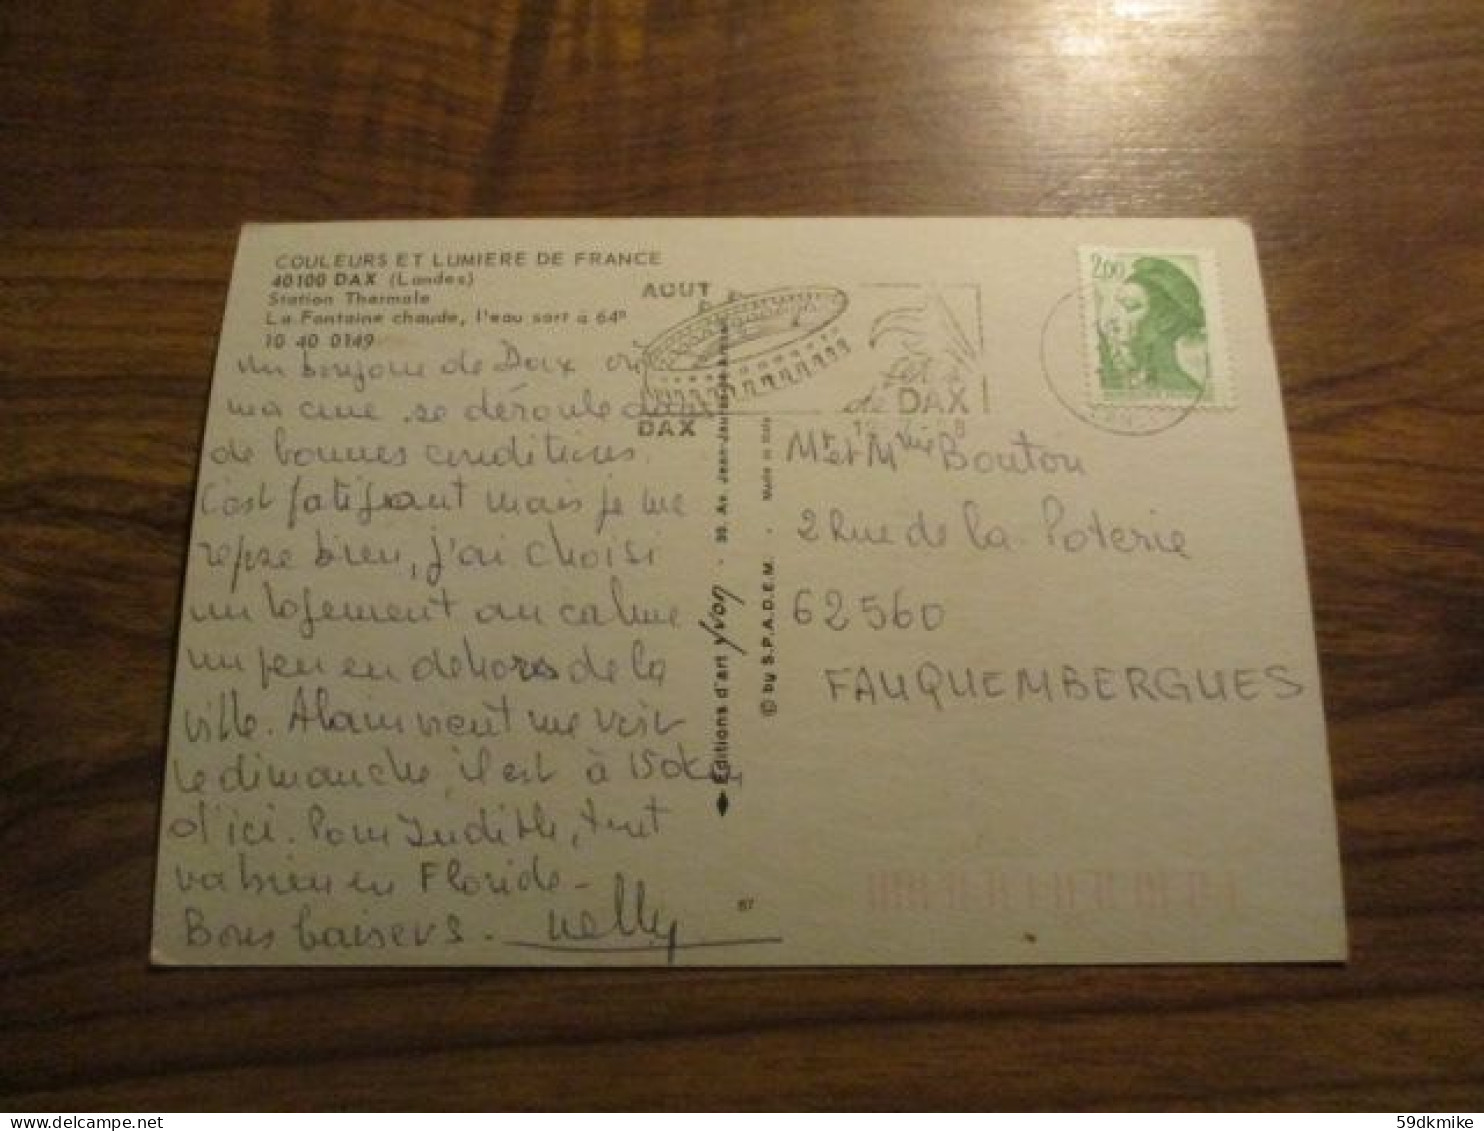 COULEURS ET LUMIERE DE FRANCE
40100 DAX (Landes)
Station Thermale
La Fontaine chaude, l'eau sort à 64°
10 40 0149
un bonjour de Dax où
ma cure se déroule dans
de bonnes conditions.
C'est fatigant mais je me
repse bien, j'ai choisi
un logement au calme
un peu en dehors de la
ville. Alain vient me voir
le dimanche, il est à 150 km
d'ici. Pour Judith, tout
va bien en Floride -
Bons baisers. Nelly
AOUT
DAX
de DAX
Editions d'art Yvon . 30, Av. Jean-Jaurès
© by S.P.A.D.E.M. . Made in Italy
87
2,00
Mr et Mme Bouton
2 Rue de la Poterie
62560
FAUQUEMBERGUES
59dkmike